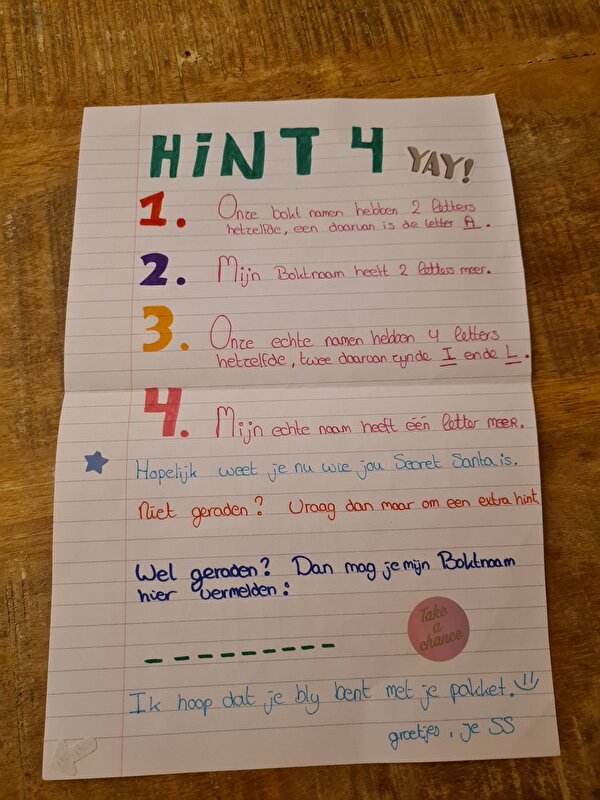 HiNT 4 YAY!
1. Onze bokt namen hebben 2 letters
hetzelfde, een daarvan is de letter A.
2. Mijn Boktnaam heeft 2 letters meer.
3. Onze echte namen hebben 4 letters
hetzelfde, twee daarvan zijn de I en de L.
4. Mijn echte naam heeft één letter meer.
Hopelijk weet je nu wie jou Secret Santa is.
Niet geraden? Vraag dan maar om een extra hint.
Wel geraden? Dan mag je mijn Boktnaam
hier vermelden:
Take
a
chance
_ _ _ _ _ _ _ _ _
Ik hoop dat je blij bent met je pakket.
groetjes, je SS